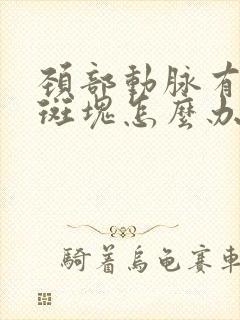 頚部動脉有
斑塊怎麼办
騎着烏龜賽車